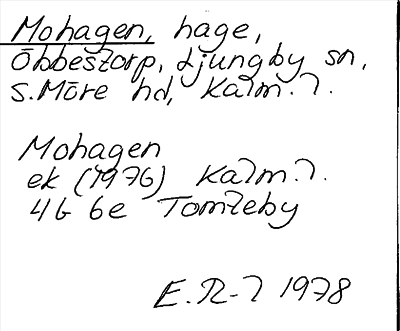 Mohagen, hage,
Öbbestorp, Ljungby sn,
S. Möre hd, Kalm. l.
Mohagen
ek (1976) Kalm. l.
4G 6e Tomteby
E. R-l 1978